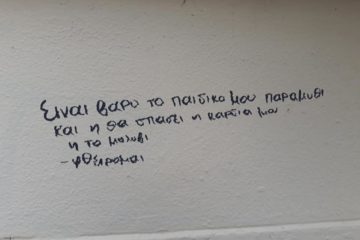 Είναι βαρύ το παιδικό μου παραμύθι
και ή θα σπάσει η καρδιά μου
ή το μολύβι
- φθείρομαι